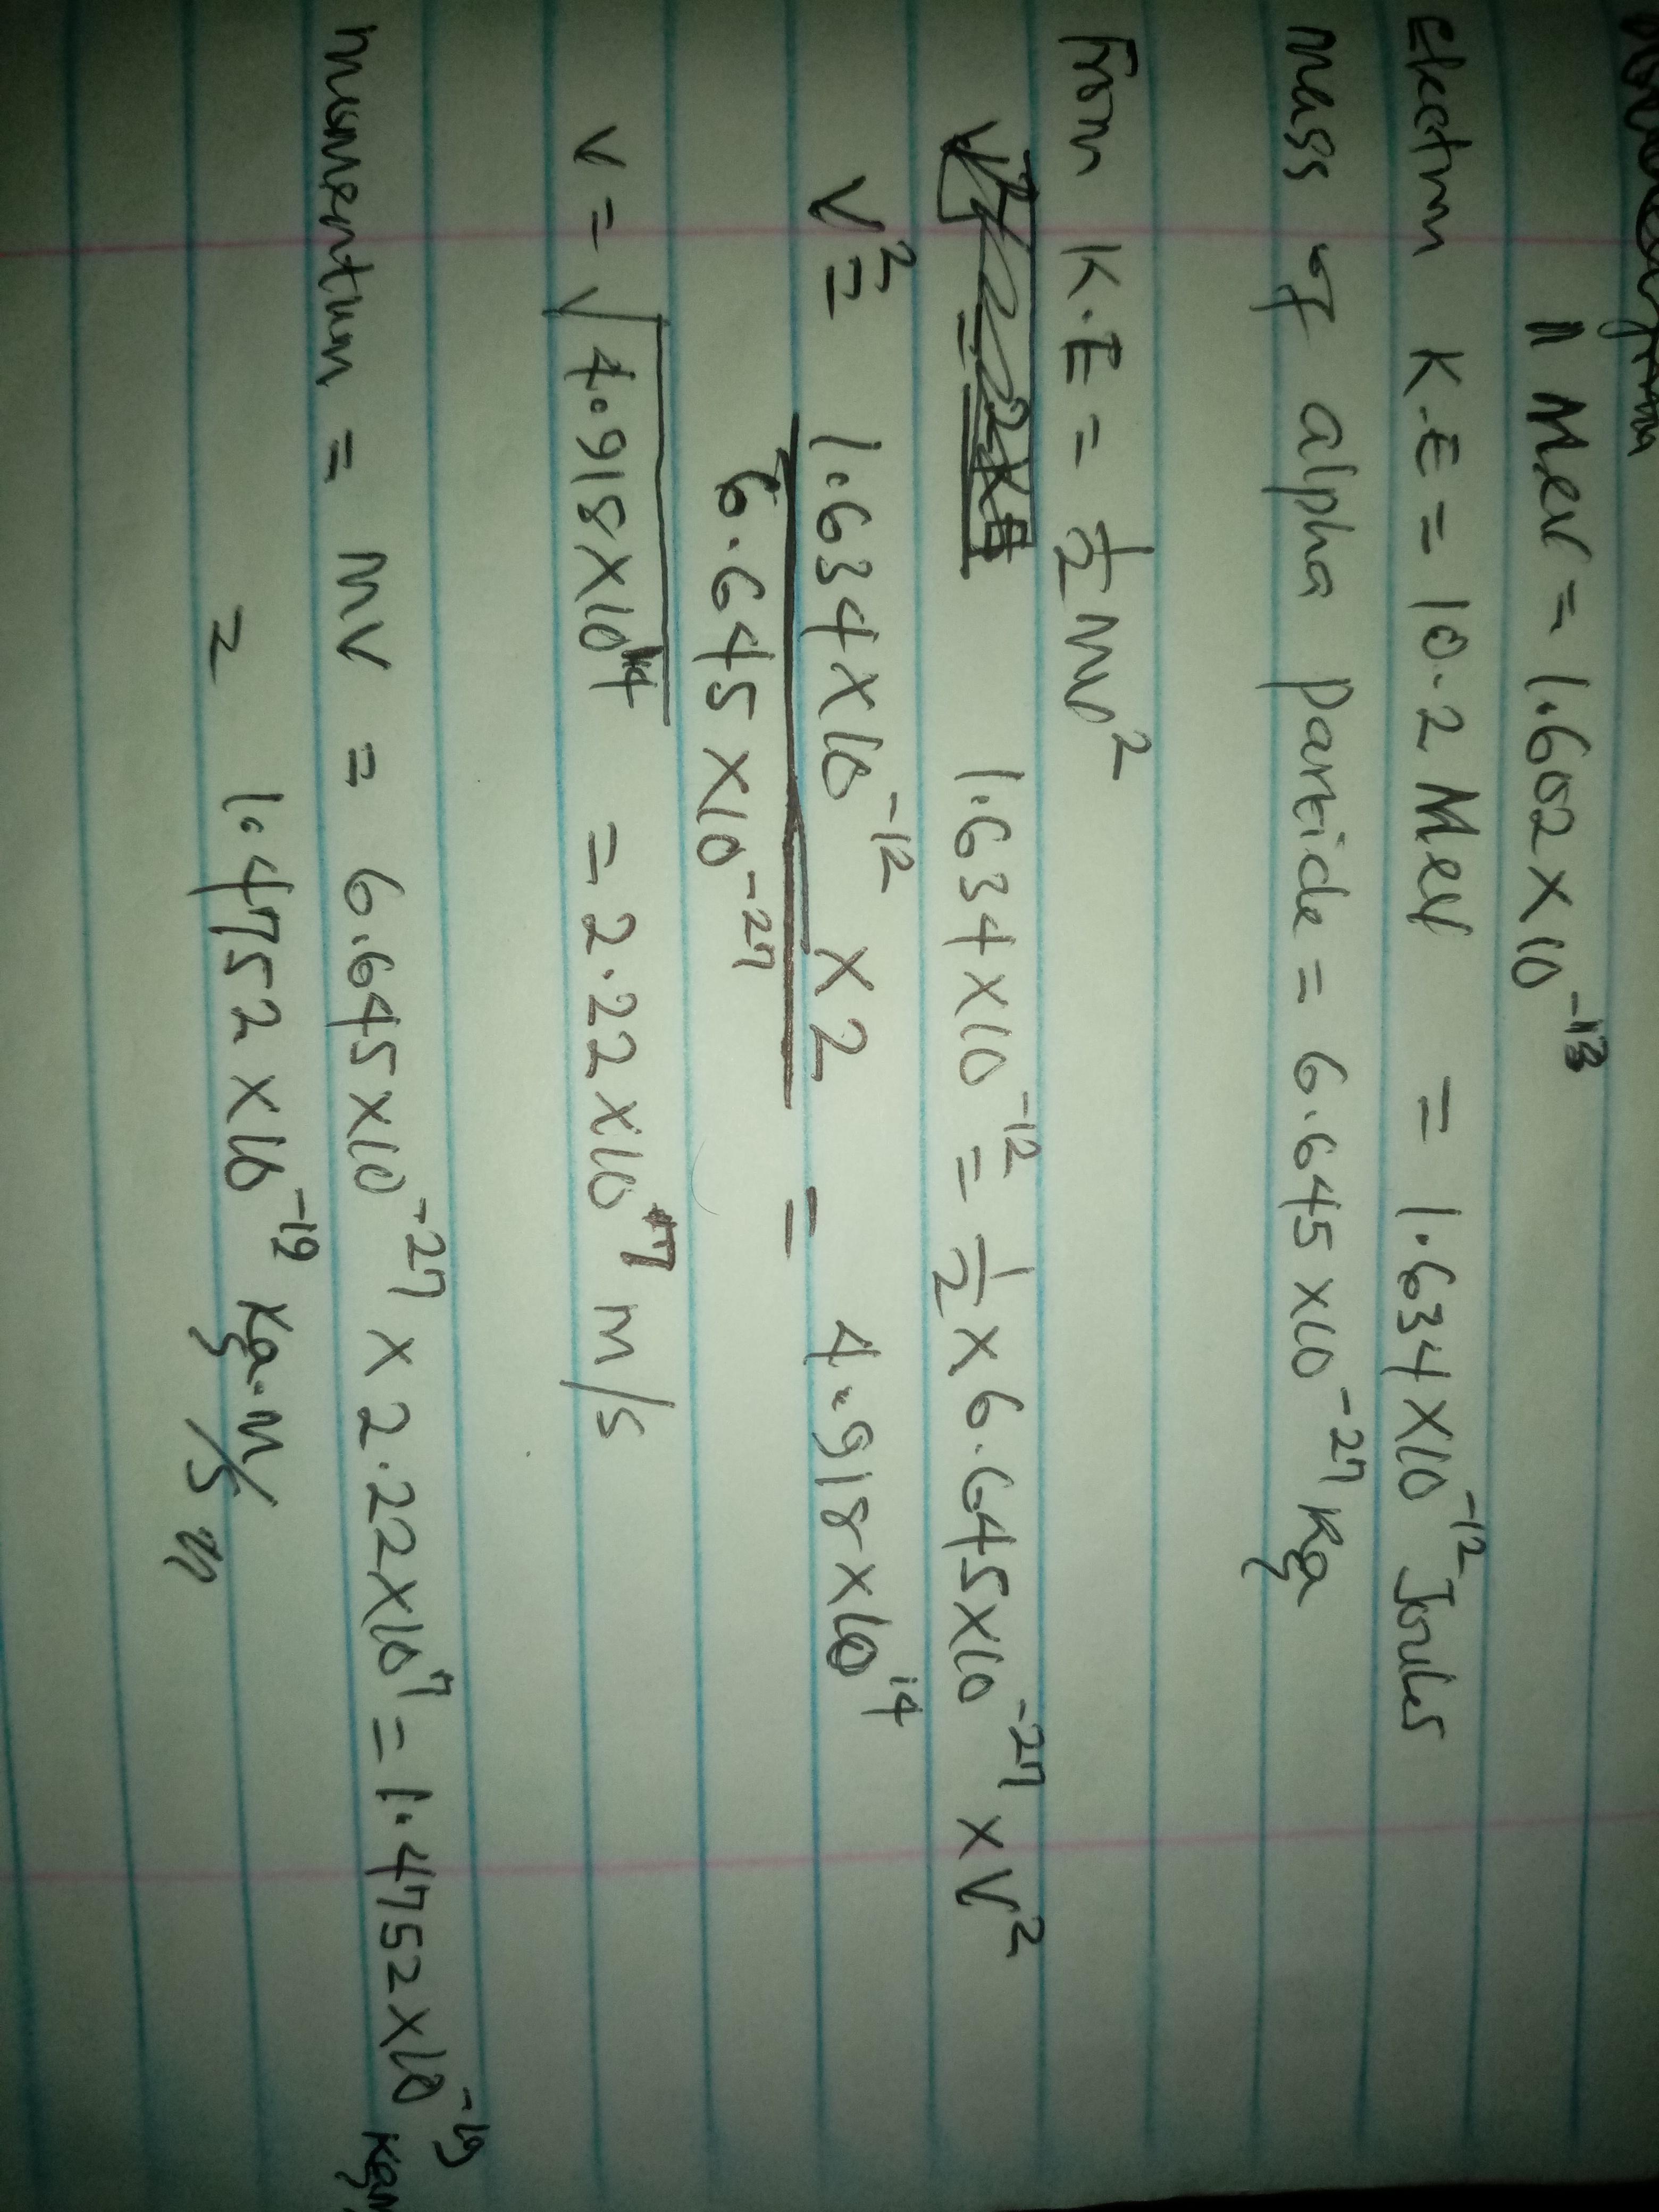 1 Mev = 1.602 x 10⁻¹³
Electrm K.E = 10.2 Mev = 1.634 x 10⁻¹² Joules
Mass of alpha particle = 6.645 x 10⁻²⁷ Kg
From K.E = 1/2 mv²
1.634 x 10⁻¹² = 1/2 x 6.645 x 10⁻²⁷ x V²
V² = 1.634 x 10⁻¹² x 2 / 6.645 x 10⁻²⁷ = 4.918 x 10¹⁴
V = √4.918 x 10¹⁴ = 2.22 x 10⁷ m/s
momentum = mv = 6.645 x 10⁻²⁷ x 2.22 x 10⁷ = 1.4752 x 10⁻¹⁹ Kgm
= 1.4752 x 10⁻¹⁹ Kg.m/s